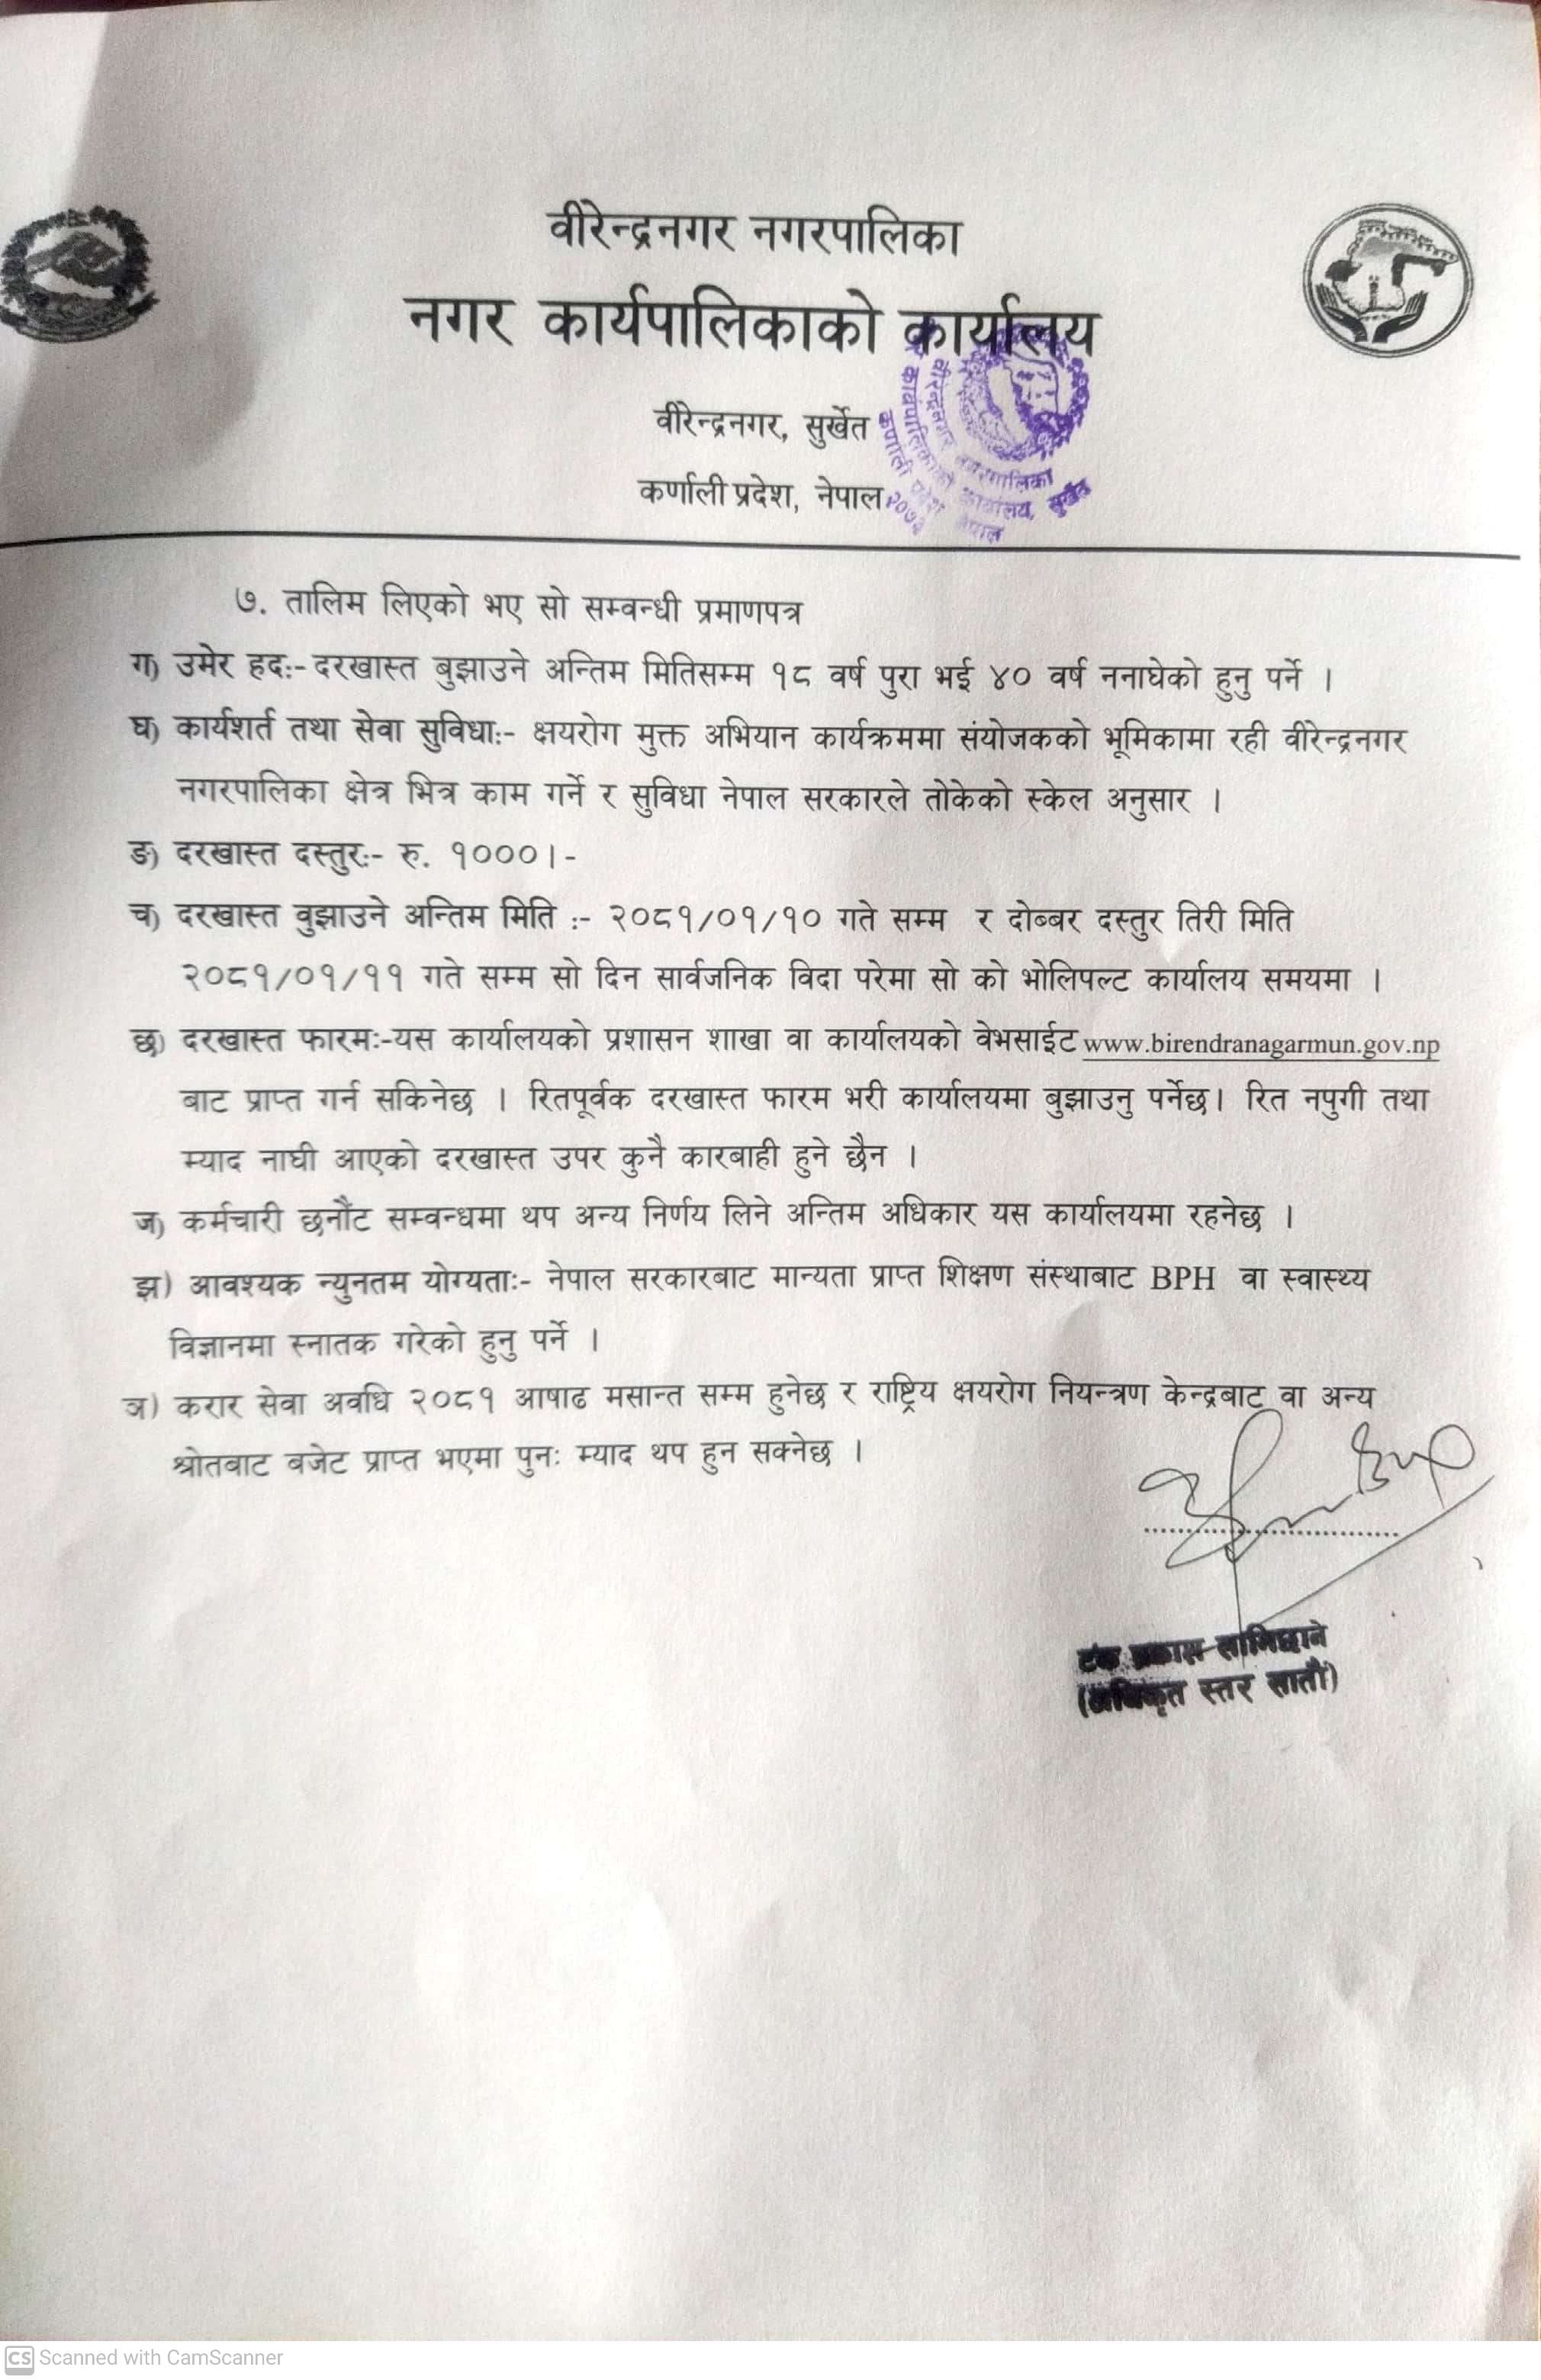 वीरेन्द्रनगर नगरपालिका
नगर कार्यपालिकाको कार्यालय
वीरेन्द्रनगर, सुर्खेत
कर्णाली प्रदेश, नेपाल
वीरेन्द्रनगर नगरपालिका
कार्यपालिकाको कार्यालय, सुर्खेत
कर्णाली प्रदेश नेपाल
७. तालिम लिएको भए सो सम्वन्धी प्रमाणपत्र
ग) उमेर हदः- दरखास्त बुझाउने अन्तिम मितिसम्म १८ वर्ष पुरा भई ४० वर्ष ननाघेको हुनु पर्ने ।
घ) कार्यशर्त तथा सेवा सुविधाः- क्षयरोग मुक्त अभियान कार्यक्रममा संयोजकको भूमिकामा रही वीरेन्द्रनगर
नगरपालिका क्षेत्र भित्र काम गर्ने र सुविधा नेपाल सरकारले तोकेको स्केल अनुसार ।
ङ) दरखास्त दस्तुरः- रु. १०००।-
च) दरखास्त वुझाउने अन्तिम मिति :- २०८१/०१/१० गते सम्म र दोब्बर दस्तुर तिरी मिति
२०८१/०१/११ गते सम्म सो दिन सार्वजनिक विदा परेमा सो को भोलिपल्ट कार्यालय समयमा ।
छ) दरखास्त फारमः-यस कार्यालयको प्रशासन शाखा वा कार्यालयको वेभसाईट www.birendranagarmun.gov.np
बाट प्राप्त गर्न सकिनेछ । रितपूर्वक दरखास्त फारम भरी कार्यालयमा बुझाउनु पर्नेछ। रित नपुगी तथा
म्याद नाघी आएको दरखास्त उपर कुनै कारबाही हुने छैन ।
ज) कर्मचारी छनौंट सम्वन्धमा थप अन्य निर्णय लिने अन्तिम अधिकार यस कार्यालयमा रहनेछ ।
झ) आवश्यक न्युनतम योग्यताः- नेपाल सरकारबाट मान्यता प्राप्त शिक्षण संस्थाबाट BPH वा स्वास्थ्य
विज्ञानमा स्नातक गरेको हुनु पर्ने ।
ञ) करार सेवा अवधि २०८१ आषाढ मसान्त सम्म हुनेछ र राष्ट्रिय क्षयरोग नियन्त्रण केन्द्रबाट वा अन्य
श्रोतबाट बजेट प्राप्त भएमा पुनः म्याद थप हुन सक्नेछ ।
टंक प्रकाश लामिछाने
(अधिकृत स्तर सातौं)
CS Scanned with CamScanner